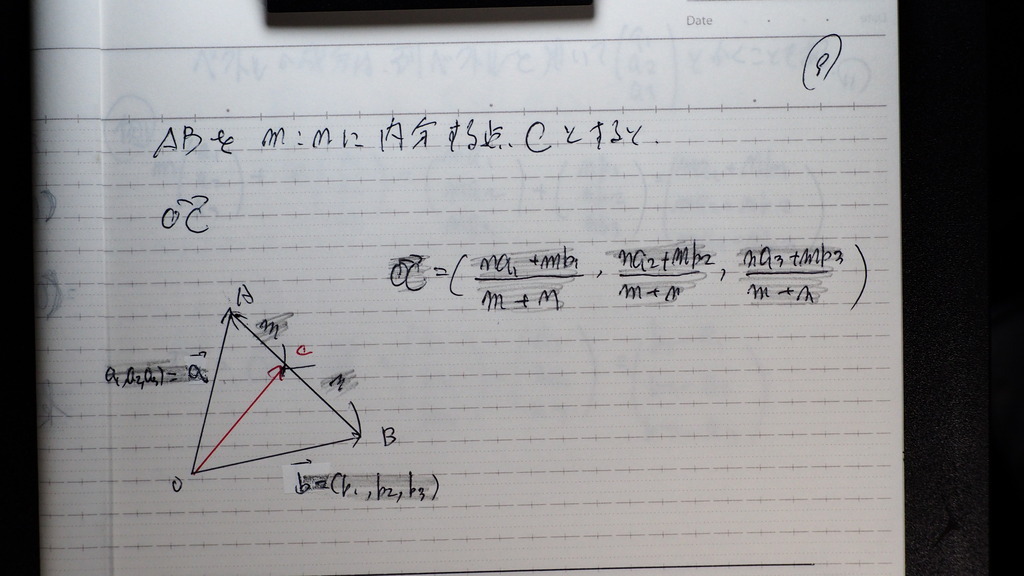 Date
9
ABを m:nに内分する点. Cとすると.
→OC
→OC = ( (na₁+mb₁)/(m+n) , (na₂+mb₂)/(m+n) , (na₃+mb₃)/(m+n) )
A
m
C
(a₁,a₂,a₃) = →a
n
B
O
→b=(b₁,b₂,b₃)